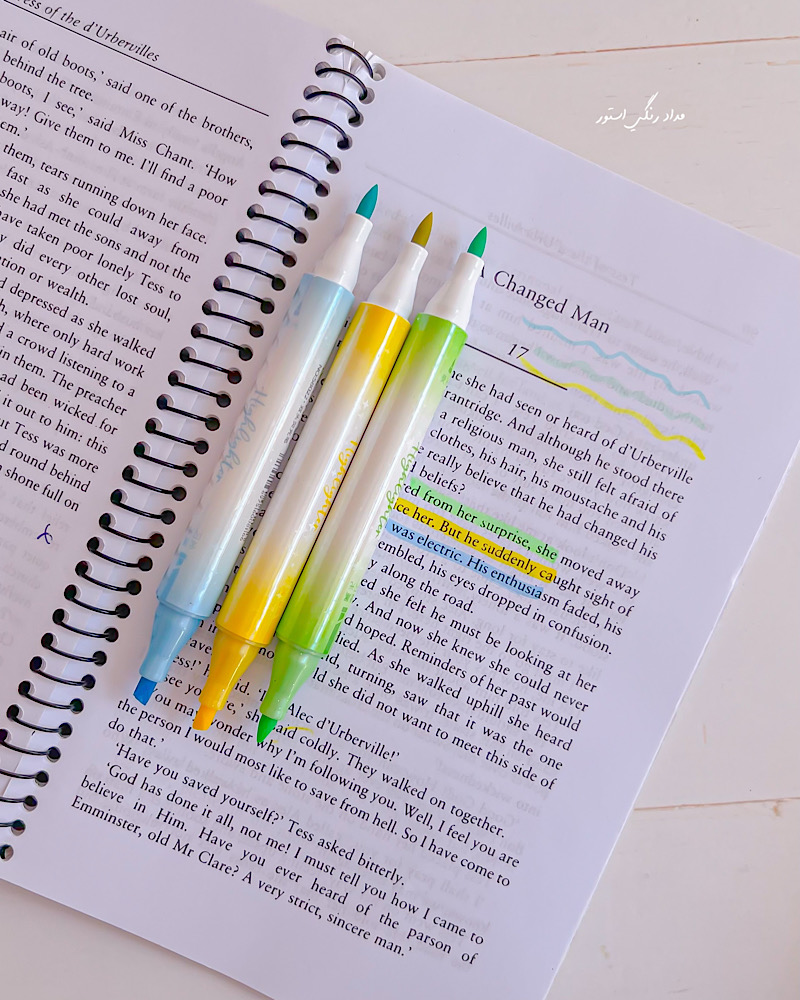 ess of the d'Urbervilles
air of old boots,' said one of the brothers,
behind the tree.
boots, I see,' said Miss Chant. 'How
way! Give them to me. I'll find a poor
cm.'
them, tears running down her face.
fast as she could away from
she had met the sons and not the
ave taken poor lonely Tess to
y did every other lost soul,
tion or wealth.
d depressed as she walked
h, where only hard work
d a crowd listening to a
in them. The preacher
ad been wicked for
it out to him: this
ut Tess was more
d round behind
n shone full on
مداد رنگي استور
A Changed Man
17
she had seen or heard of d'Urberville
rantridge. And although he stood there
a religious man, she still felt afraid of
clothes, his hair, his moustache and his
e really believe that he had changed his
d beliefs?
red from her surprise, she moved away
ce her. But he suddenly caught sight of
was electric. His enthusiasm faded, his
embled, his eyes dropped in confusion.
y along the road.
ed she felt he must be looking at her
. And now she knew she could never
d hoped. Reminders of her past would
lied. As she walked uphill she heard
nd, turning, saw that it was the one
ld she did not want to meet this side of
ave.
ess!' id. 'I Alec d'Urberville!'
see you are,' she said coldly. They walked on together.
ou may wonder why I'm following you. Well, I feel you are
the person I would most like to save from hell. So I have come to
do that.'
'Have you saved yourself?' Tess asked bitterly.
'God has done it all, not me! I must tell you how I came to
believe in Him. Have you ever heard of the parson of
Emminster, old Mr Clare? A very strict, sincere man.'
Highlighter
Highlighter
Highlighter